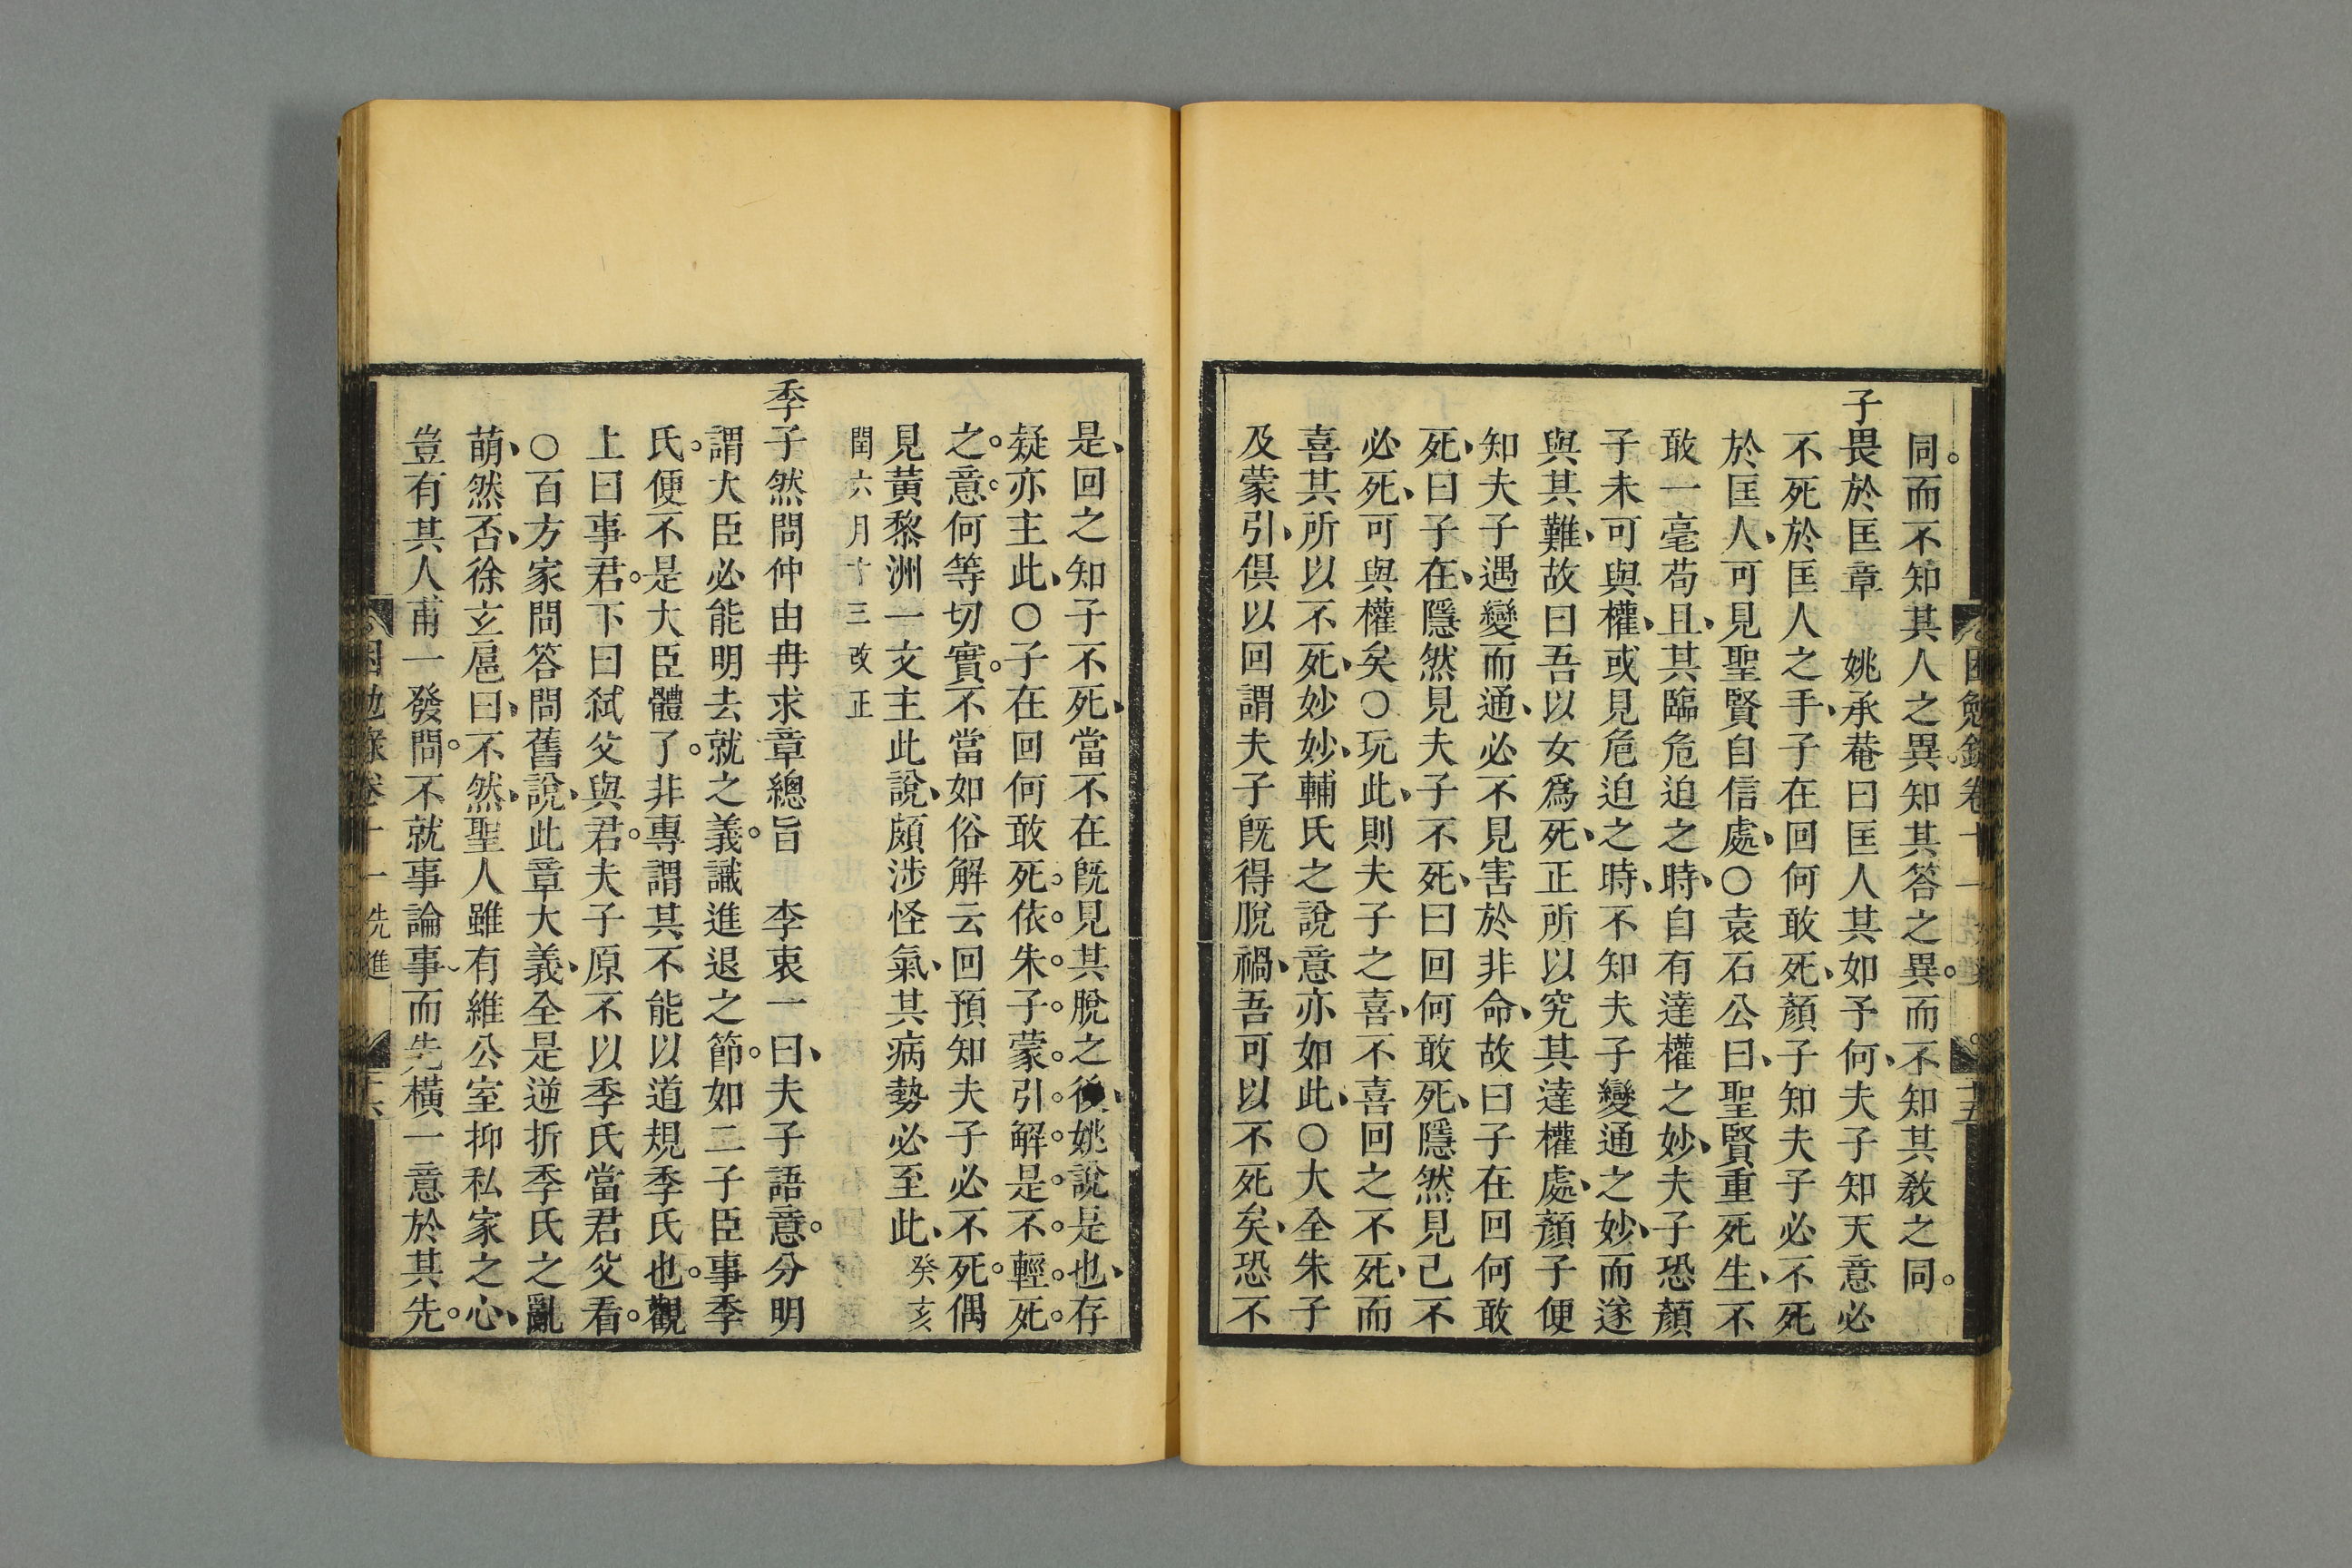 困勉錄卷十一 先進 十五
同。而不知其人之異知其答之異。而不知其教之同。
子畏於匡章 姚承菴曰匡人其如予何、夫子知天意必
不死於匡人之手、子在回何敢死、顏子知夫子必不死
於匡人、可見聖賢自信處、○袁石公曰、聖賢重死生、不
敢一毫苟且、其臨危迫之時、自有達權之妙、夫子恐顏
子未可與權、或見危迫之時、不知夫子變通之妙、而遂
與其難、故曰吾以女爲死、正所以究其達權處、顏子便
知夫子遇變而通、必不見害於非命、故曰子在回何敢
死、曰子在、隱然見夫子不死、曰回何敢死、隱然見己不
必死、可與權矣○玩此、則夫子之喜、不喜回之不死、而
喜其所以不死、妙妙、輔氏之說意亦如此、○大全朱子
及蒙引、俱以回謂夫子旣得脫禍、吾可以不死矣、恐不
是、回之知子不死、當不在旣見其脫之後、姚說是也、存
疑亦主此、○子在回何敢死。依。朱。子。蒙。引。解。是。不。輕。死。
之。意。何等切實。不當如俗解云回預知夫子必不死。偶
見黃黎洲一文主此說、頗涉怪氣、其病勢必至此、癸亥
閏六月十三改正
季子然問仲由冉求章總旨 李衷一曰、夫子語意。分明
謂大臣必能明去就之義。識進退之節。如二子臣事季
氏。便不是大臣體了。非專謂其不能以道規季氏也。觀
上曰事君。下曰弑父與君。夫子原不以季氏當君父看。
○百方家問答問舊說、此章大義、全是逆折季氏之亂
萌、然否、徐玄扈曰、不然、聖人雖有維公室抑私家之心、
豈有其人甫一發問。不就事論事、而先橫一意於其先。
困勉錄卷十一 先進 十六